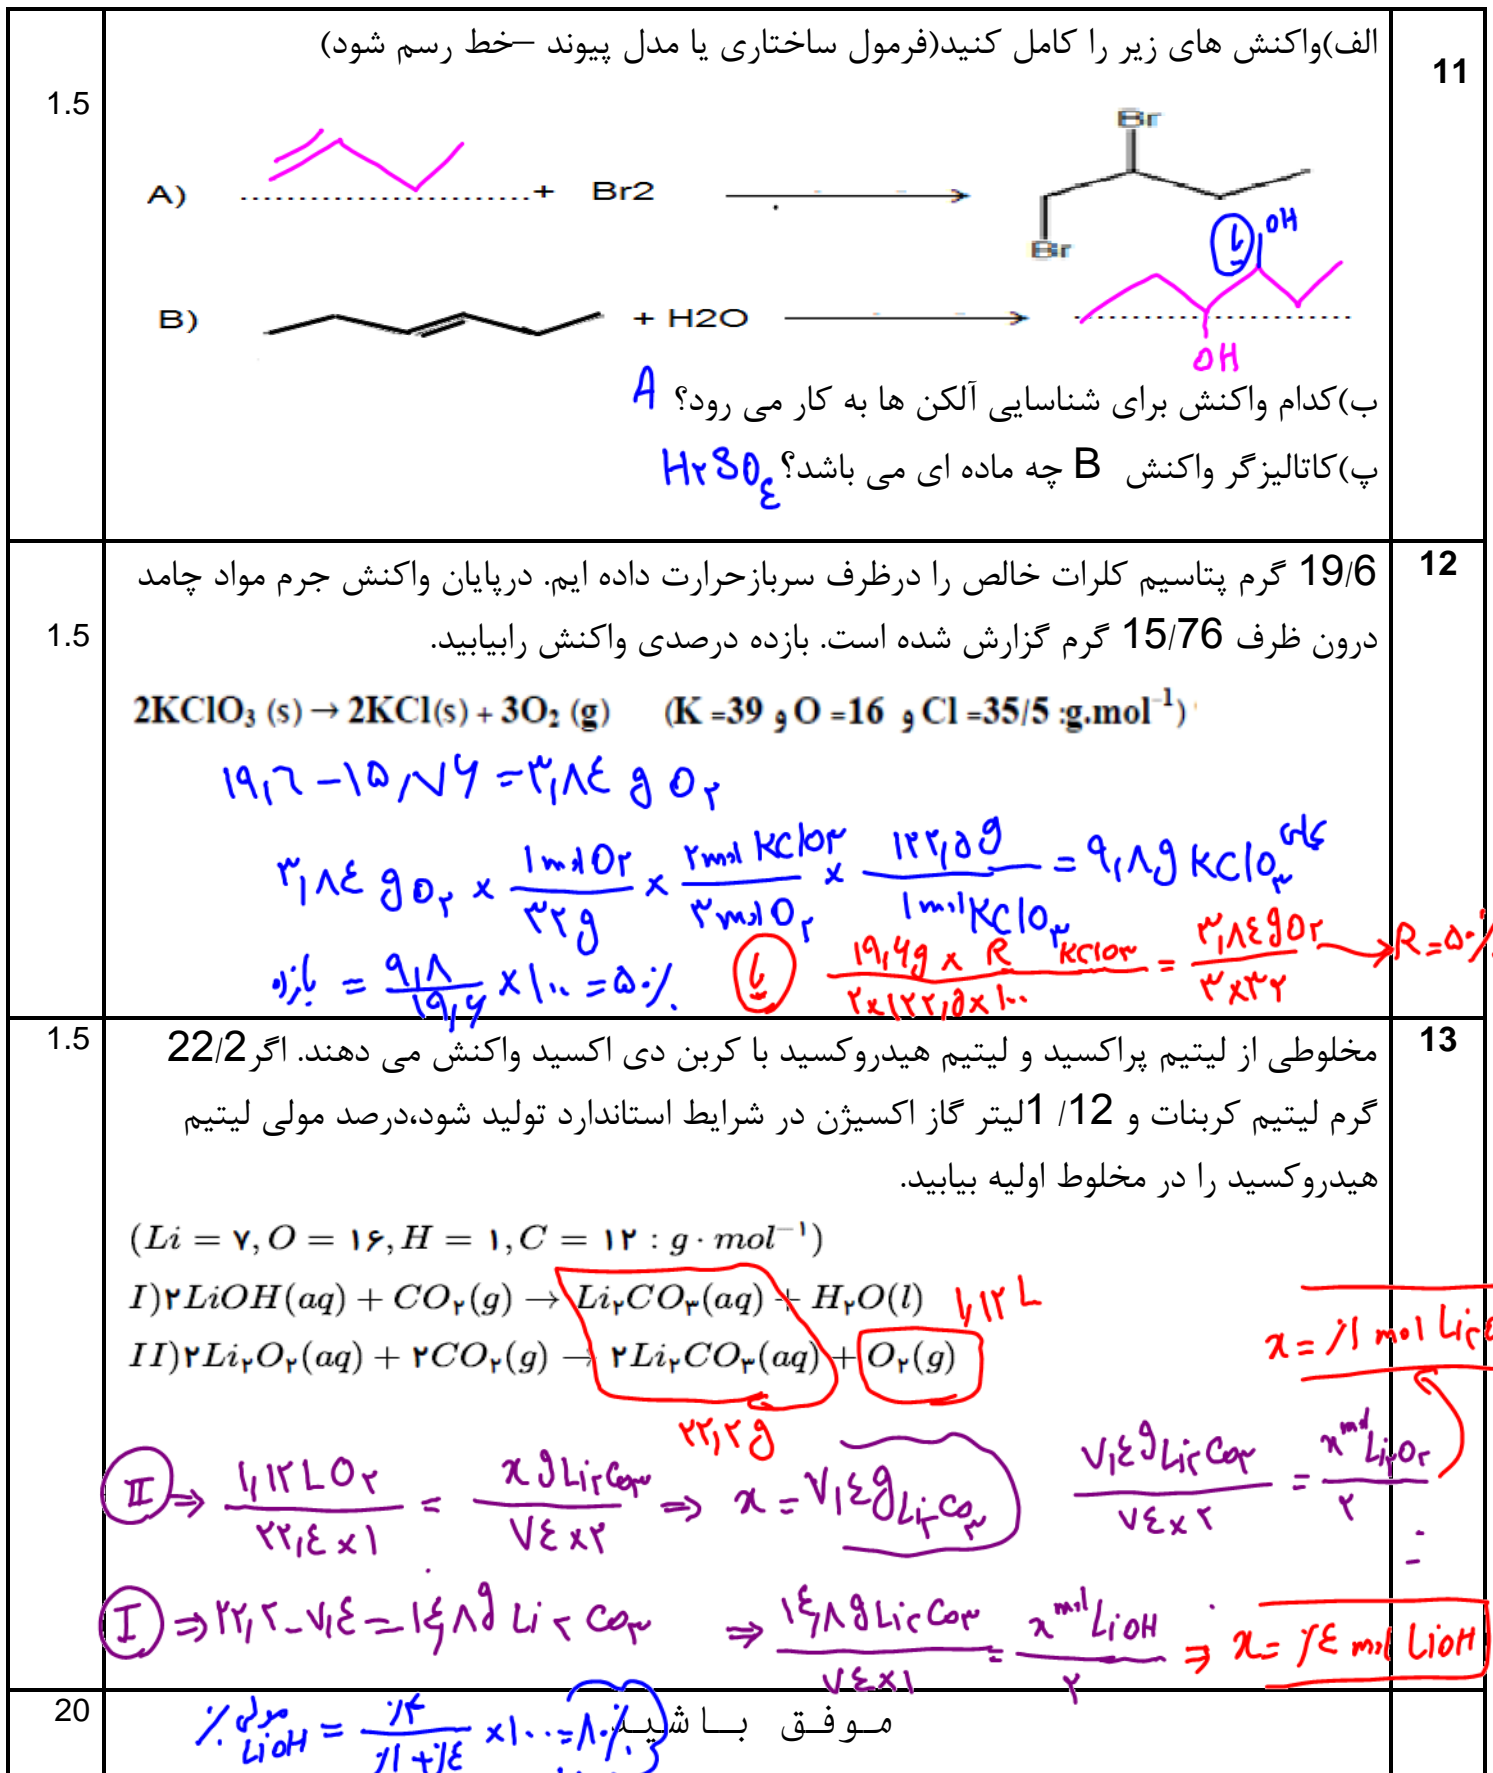 11
الف)واکنش های زیر را کامل کنید(فرمول ساختاری یا مدل پیوند –خط رسم شود)
1.5
A) ..............................+ Br2
Br
Br
B) + H2O
یا OH
OH
ب)کدام واکنش برای شناسایی آلکن ها به کار می رود؟ A
پ)کاتالیزگر واکنش B چه ماده ای می باشد؟ H۲SO۴
12
19/6 گرم پتاسیم کلرات خالص را درظرف سربازحرارت داده ایم. درپایان واکنش جرم مواد جامد
1.5
درون ظرف 15/76 گرم گزارش شده است. بازده درصدی واکنش رابیابید.
2KClO₃ (s) → 2KCl(s) + 3O₂ (g) (K =39 و O =16 و Cl =35/5 :g.mol⁻¹)
۱۹,۶ – ۱۵,۷۶ = ۳,۸۴ g O۲
۳,۸۴ g O۲ × ۱ mol O۲ / ۳۲ g × ۲ mol KClO۳ / ۳ mol O۲ × ۱۲۲,۵ g / ۱ mol KClO۳ = ۹,۸ g KClO۳
بازده = ۹,۸ / ۱۹,۶ × ۱۰۰ = ۵۰٪
یا ۱۹,۶ g × R KClO۳ / ۲×۱۲۲,۵×۱۰۰ = ۳,۸۴ g O۲ / ۳×۳۲ → R = ۵۰٪
13
1.5
مخلوطی از لیتیم پراکسید و لیتیم هیدروکسید با کربن دی اکسید واکنش می دهند. اگر22/2
گرم لیتیم کربنات و 12/ 1لیتر گاز اکسیژن در شرایط استاندارد تولید شود،درصد مولی لیتیم
هیدروکسید را در مخلوط اولیه بیابید.
(Li = ۷, O = ۱۶, H = ۱, C = ۱۲ : g · mol⁻¹)
I)۲LiOH(aq) + CO۲(g) → Li۲CO۳(aq) + H۲O(l)
۱,۱۲ L
II)۲Li۲O۲(aq) + ۲CO۲(g) → ۲Li۲CO۳(aq) + O۲(g)
x = ۰/۱ mol
۲۲,۲ g
II ⇒ ۱,۱۲ L O۲ / ۲۲,۴ × ۱ = x g Li۲CO۳ / ۷۴ × ۲ ⇒ x = ۷,۴ g Li۲CO۳
۷,۴ g Li۲CO۳ / ۷۴ × ۲ = x mol Li۲O۲ / ۲
I ⇒ ۲۲,۲ – ۷,۴ = ۱۴,۸ g Li۲CO۳ ⇒ ۱۴,۸ g Li۲CO۳ / ۷۴ × ۱ = x mol LiOH / ۲ ⇒ x = ۰/۴ mol LiOH
20
موفق باشید
٪ مولی LiOH = ۰/۴ / ۰/۱ + ۰/۴ × ۱۰۰ = ۸۰٪